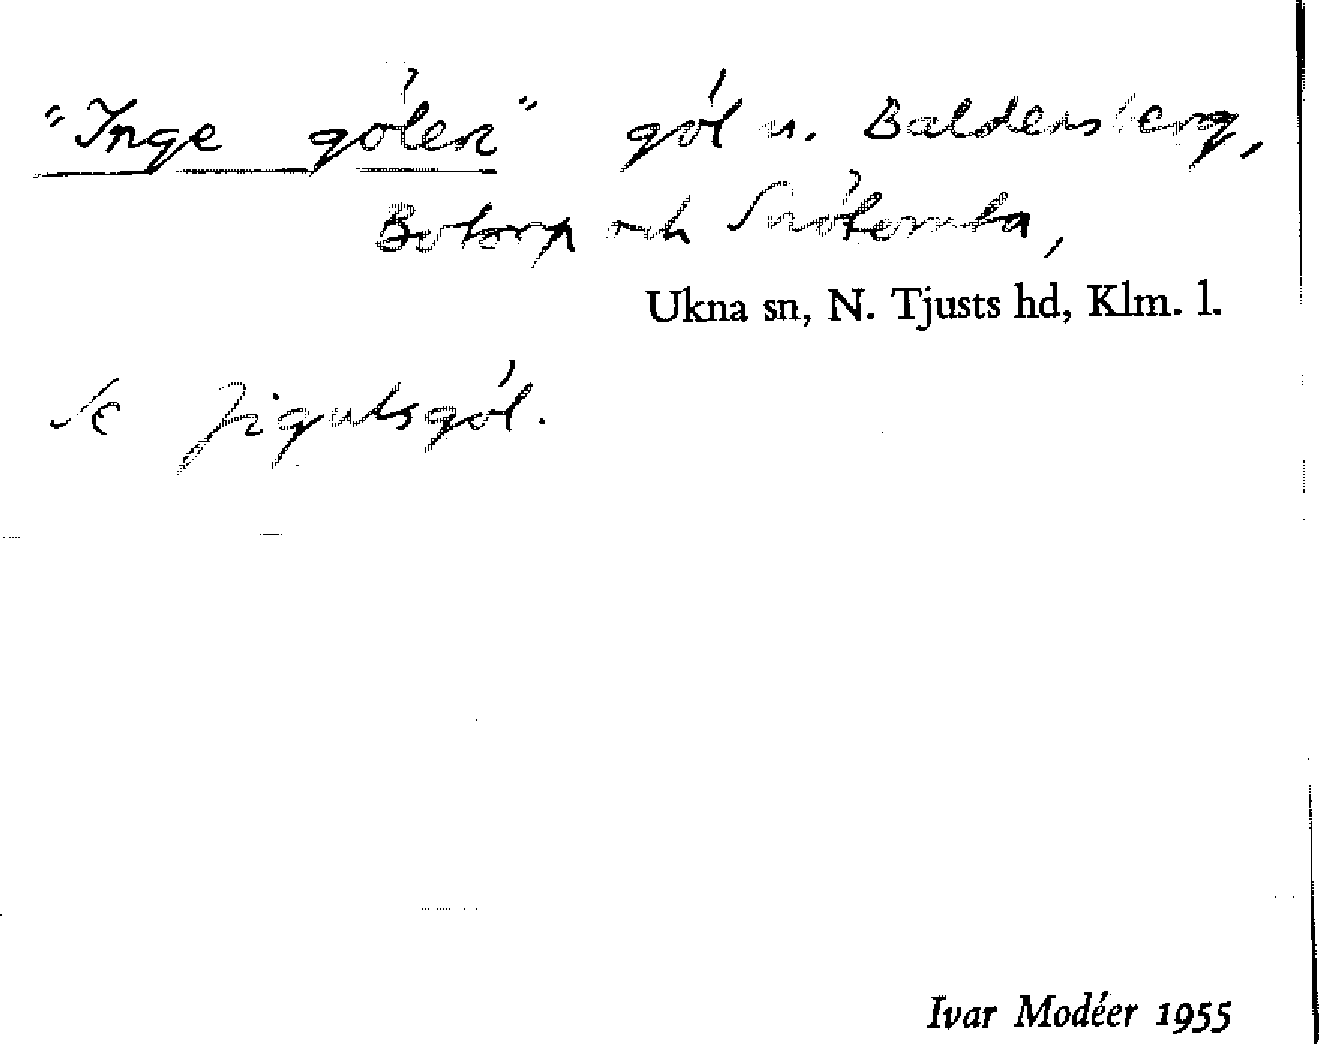 "Inge gölen" göl u. Baldersberg,
Botorp och
Ukna sn, N. Tjusts hd, Klm. l.
Se
Ivar Modéer 1955